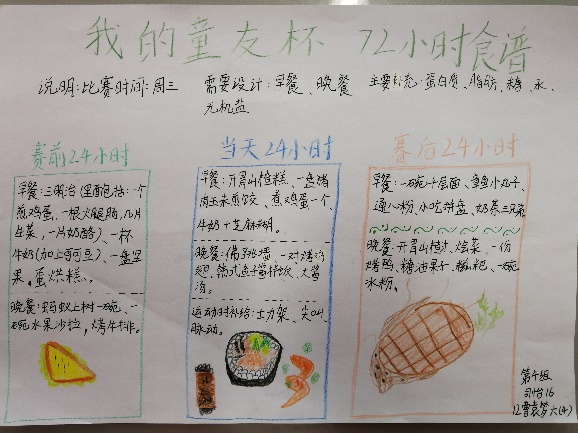 我的童友杯 72小时食谱
说明:比赛时间:周三 需要设计:早餐、晚餐 主要补充:蛋白质、脂肪、糖、水、
无机盐
赛前24小时
早餐:三明治(里面包括:一个
煎鸡蛋,一根火腿肠,几片
生菜,一片奶酪)、一杯
牛奶(加上可可豆)、一盘坚
果,蛋烘糕。
晚餐:蚂蚁上树一碗、一
碗水果沙拉,烤牛排。
当天24小时
早餐:开胃山楂糕、一盘猪
肉玉米煎饺、煮鸡蛋一个、
牛奶+芝麻糊。
晚餐:佛跳墙 一对烤鸡
翅、韩式鱼子酱拌饭、大酱
汤。
运动时补给:士力架、尖叫、
脉动。
赛后24小时
早餐:一碗千层面、鱼小丸子、
通心粉、小吃拼盘、奶茶三兄弟
晚餐:开胃山楂汁、烩菜、一份
烤鸭、糖油果子、糍粑、一碗
冰粉。
第4组
12曹袁梦 六(4)